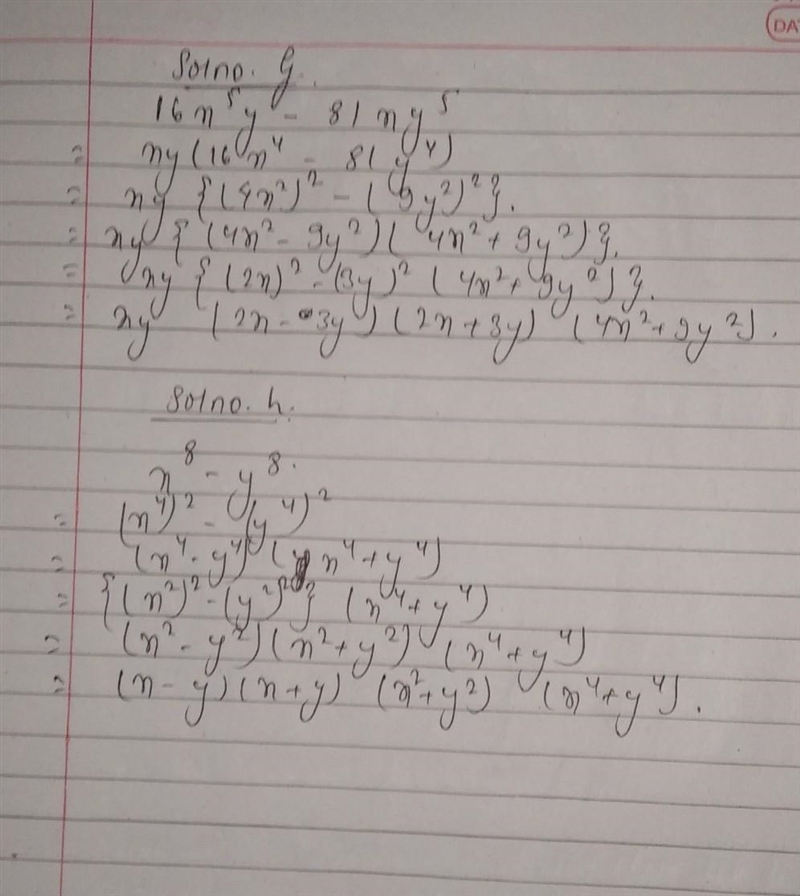 DA
Solno. g.
16x⁵y - 81xy⁵
= xy(16x⁴ - 81y⁴)
= xy {(4x²)² - (9y²)²}.
= xy {(4x² - 9y²)(4x² + 9y²)}.
= xy {(2x)² - (3y)² (4x² + 9y²)}.
= xy (2x - 3y)(2x + 3y) (4x² + 9y²).
Solno. h.
x⁸ - y⁸.
= (x⁴)² - (y⁴)²
= (x⁴ - y⁴) (x⁴ + y⁴)
= {(x²)² - (y²)²} (x⁴ + y⁴)
= (x² - y²)(x² + y²) (x⁴ + y⁴)
= (x - y)(x + y) (x² + y²) (x⁴ + y⁴).